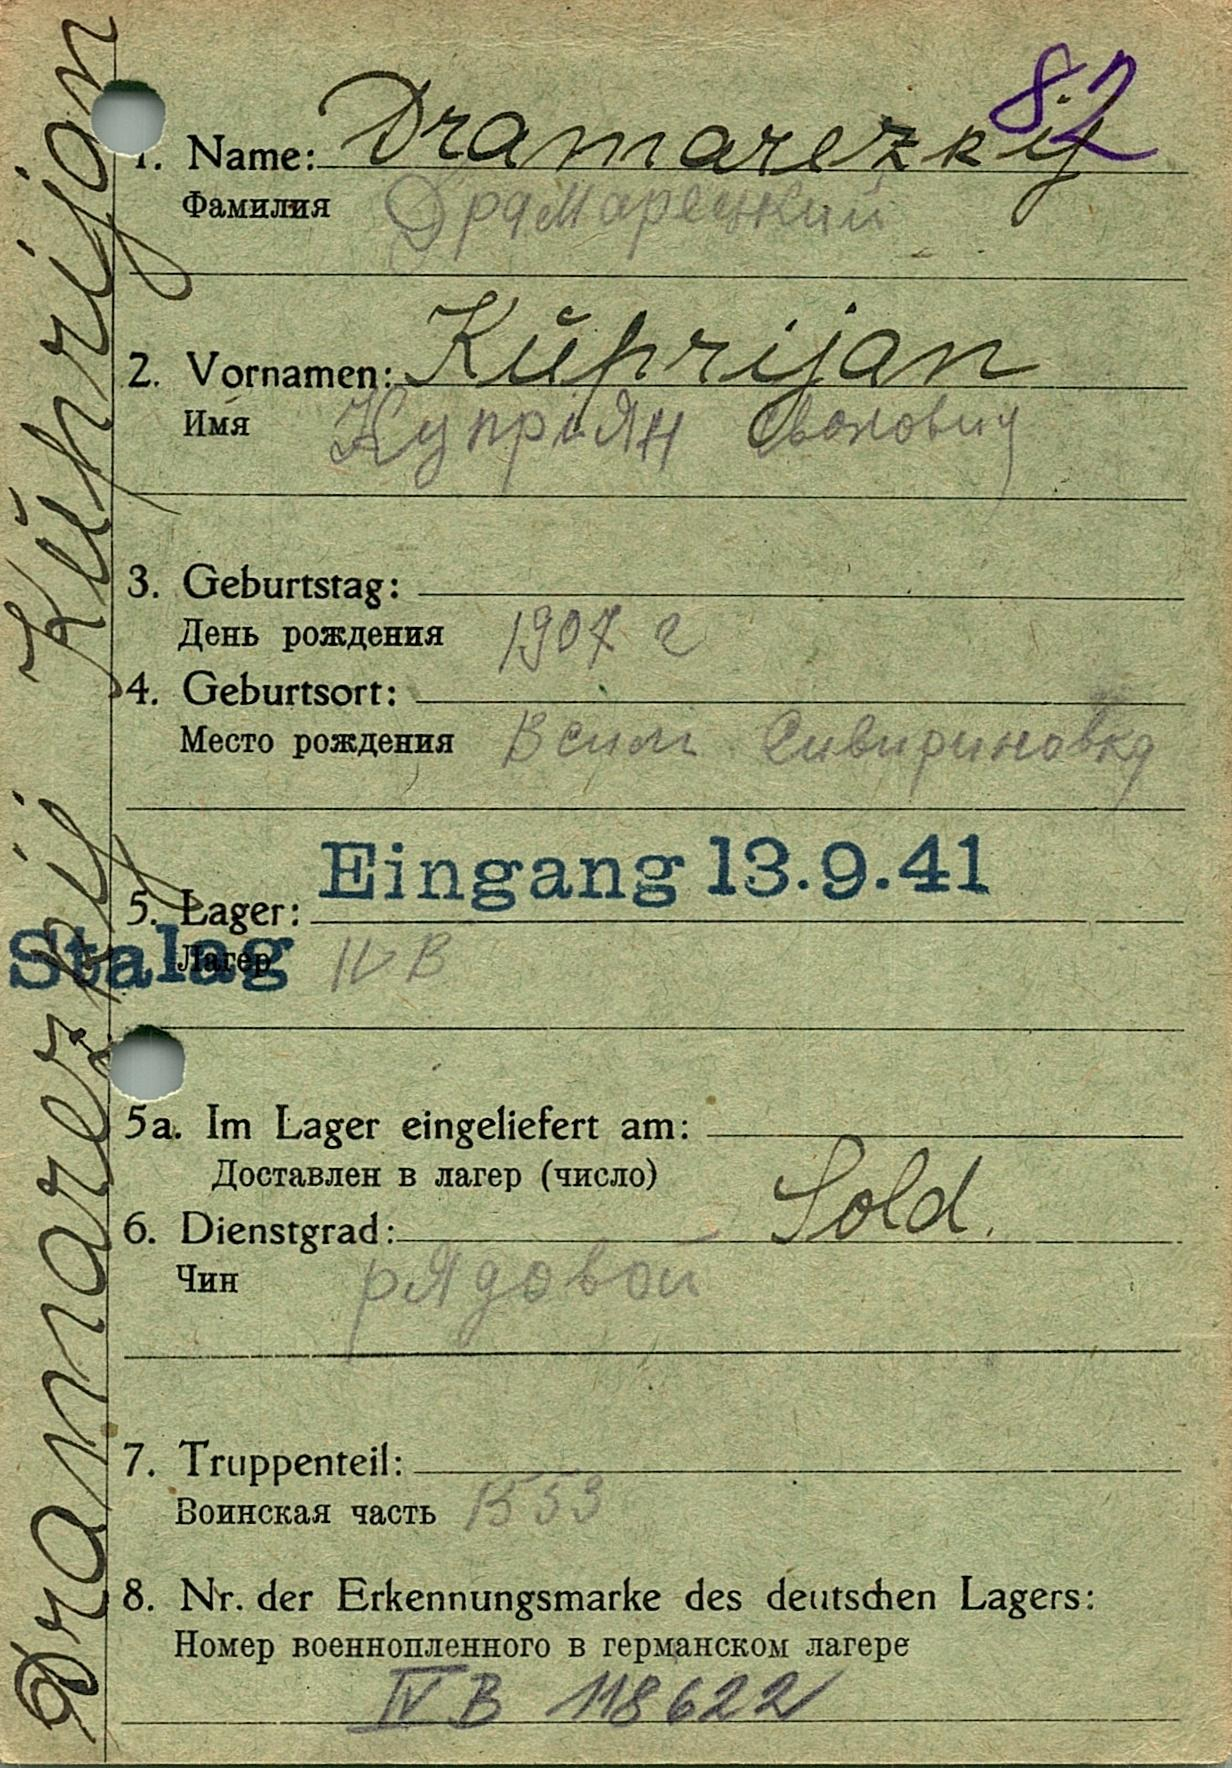 82
1. Name: Dramarezkij
Фамилия Драмарецкий
2. Vornamen: Kŭprijan
Имя Купріян
3. Geburtstag:
День рождения 1907 г
4. Geburtsort:
Место рождения Всилі Сивириновка
Eingang 13.9.41
5. Lager:
Stalag
Лагер IV B
5a. Im Lager eingeliefert am:
Доставлен в лагер (число)
6. Dienstgrad: Sold.
Чин рядовой
7. Truppenteil:
Воинская часть 1553
8. Nr. der Erkennungsmarke des deutschen Lagers:
Номер военнопленного в германском лагере
IV B 118622
Dramarezkij Kŭprijan